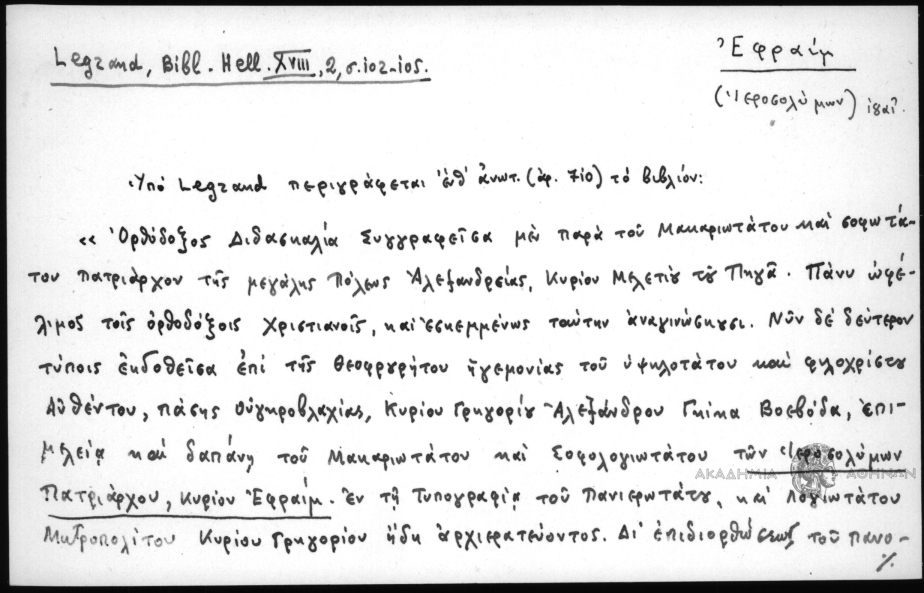 Legrand, Bibl. Hell. XVIII, 2, σ. 102-105.
Ἐφραίμ
(Ἱεροσολύμων)
Ὑπό Legrand περιγράφεται ἐνθ' ἀνωτ. (ἀρ. 710) τό βιβλίον:
« Ὀρθόδοξος Διδασκαλία Συγγραφεῖσα μέν παρά τοῦ Μακαριωτάτου καί σοφωτά-
του πατριάρχου τῆς μεγάλης Πόλεως Ἀλεξανδρείας, Κυρίου Μελετίου τοῦ Πηγᾶ. Πάνυ ὠφέ-
λιμος τοῖς ὀρθοδόξοις Χριστιανοῖς, καί ἐσκεμμένως ταύτην ἀναγινώσκουσι. Νῦν δέ δεύτερον
τύποις ἐκδοθεῖσα ἐπί τῆς θεοφρουρήτου ἡγεμονίας τοῦ ὑψηλοτάτου καί φιλοχρίστου
Αὐθέντου, πάσης Οὑγκροβλαχίας, Κυρίου Γρηγορίου Ἀλεξάνδρου Γκίκα Βοεβόδα, ἐπι-
μελείᾳ καί δαπάνῃ τοῦ Μακαριωτάτου καί Σοφολογιωτάτου τῶν Ἱεροσολύμων
Πατριάρχου, κυρίου Ἐφραίμ. Ἐν τῇ Τυπογραφίᾳ τοῦ Πανιερωτάτου, καί Λογιωτάτου
Μητροπολίτου Κυρίου Γρηγορίου ἤδη ἀρχιερατεύοντος. Δι' ἐπιδιορθώσεως τοῦ πανο-
./.
ΑΚΑΔΗΜΙΑ ΑΘΗΝΩΝ